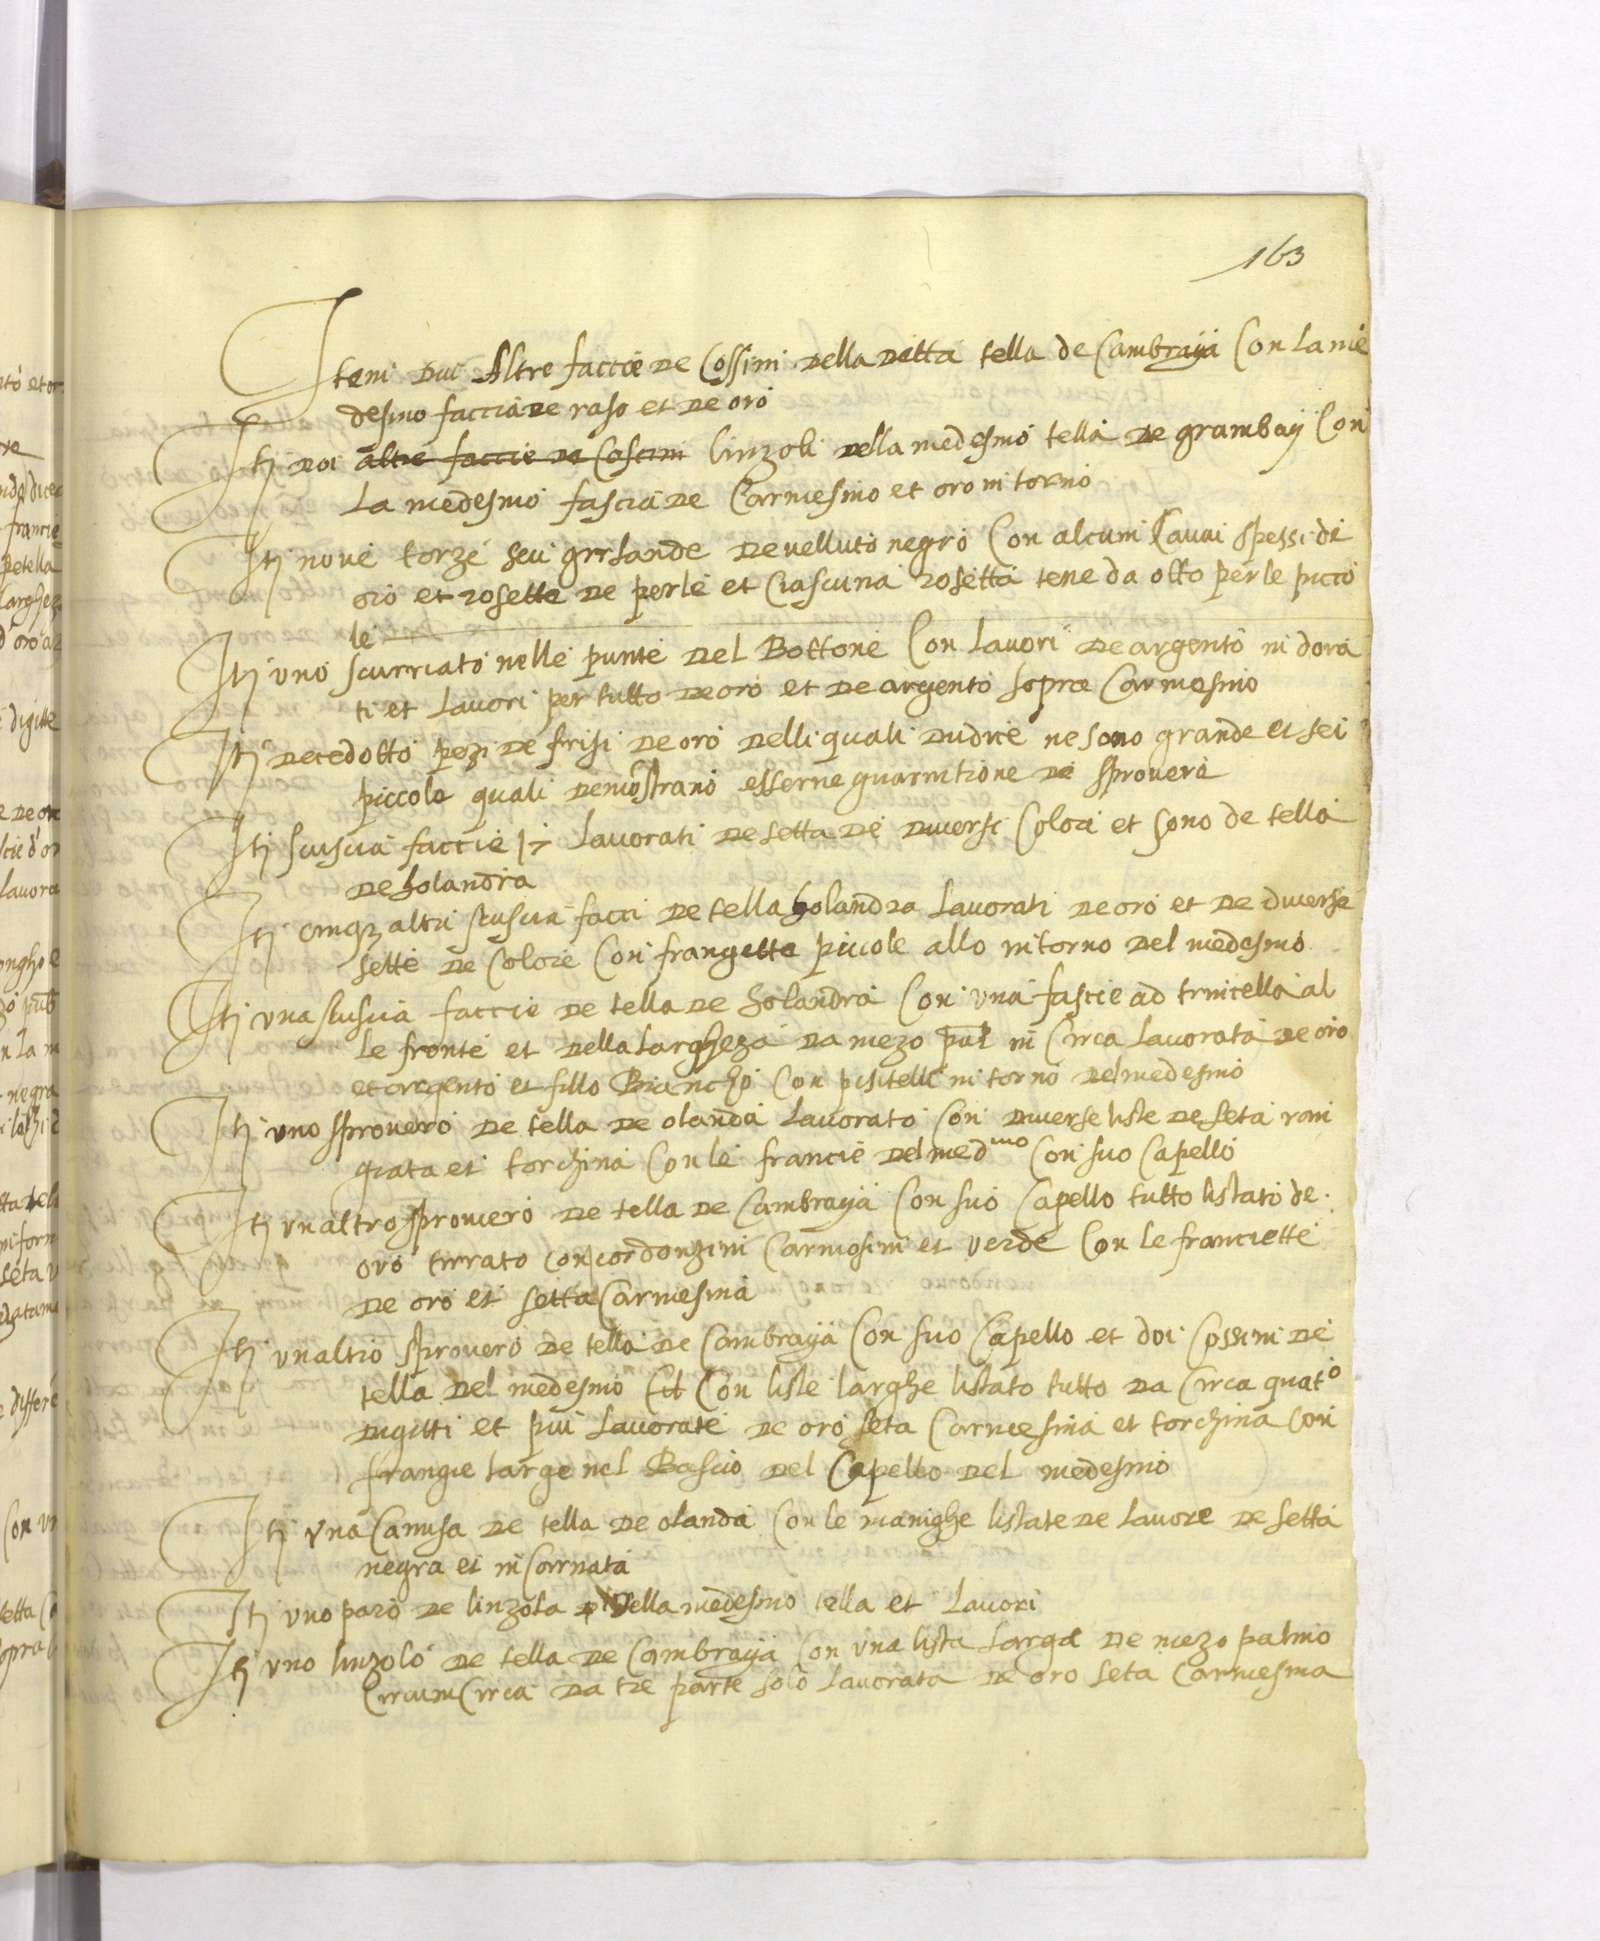 163
Item Dui Altre faccie de Cossini della detta tella de Cambraya Con la me
desmo faccia de raso et de oro
Itj doi altre faccie de Coscini linzoli della medesmo tella de grambaij Con
la medesmo fascia de Carmesino et oro in torno
Itj nove torze seu grrlande de velluto negro Con alcuni lauui spessi di
oro et rosette de perle et Ciascuna rosetta tene da otto perle picco
le
Itj uno scurriato nelle punte del Bottone Con lavori de argento in dora
ti et lavori per tutto de oro et de argento sopra Carmosino
Itj decedotto pezi de frisi de oro delli quali dudice ne sono grande et sei
piccole quali demostrano esserne guarnitione de sprovero
Itj scuscia faccie lavorati de setta de diversi Colori et sono de tella
de holandra
Itj cinqz altri scuscia facci de tella holandra lavorati de oro et de diverse
sette de Colore Con frangette piccole allo intorno del medesmo
Itj una scuscia faccie de tella de holandra Con una fascie ad trnicella al
le fronte et della largheza da mezo pal in Circa lavorata de oro
et argento et fillo Biancho Con pisitelli in torno del medesmo
Itj uno sprovero de tella de olanda lavorato Con diverse liste de seta ron
giata et torchina Con le francie del med.mo Con suo Capello
Itj un altro sprovero de tella de Cambraya Con suo Capello tutto listato de
oro tirrato Con cordonzini Carmosini et verde Con le franciette
de oro et setta Carmesina
Itj un altro sprovero de tella de Cambraya Con suo Capello et doi Cossini de
tella del medesmo Con liste larghe listato tutto da Circa quat.o
digitti et piu lavorate de oro seta Carmesina et torchina Con
frangie large nel Bascio del Capello del medesmo
Itj una Camisa de tella de olanda Con le manighe listate de lavore de setta
negra et in Carnata
Itj uno paro de linzola della medesmo tella et lavori
Itj uno linzolo de tella de Cambraya Con una lista larga de mezo palmo
CircumCirca da tre parte solo lavorata de oro seta Carmesina